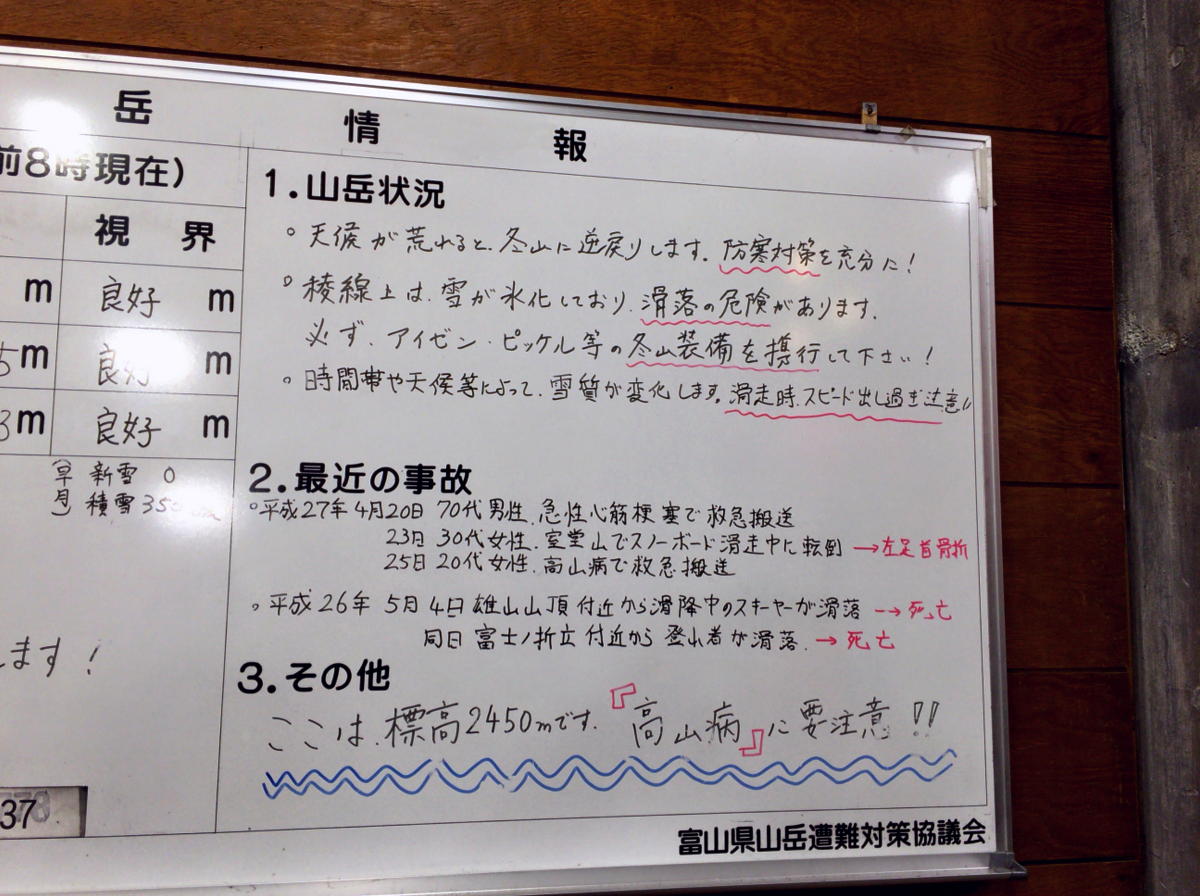 岳 情 報
前8時現在)
視 界
m 良好 m
5m 良好 m
3m 良好 m
新雪 0
積雪 350
します!
37
1.山岳状況
。天候が荒れると、冬山に逆戻りします。防寒対策を充分に!
。稜線上は、雪が氷化しており、滑落の危険があります。
必ず、アイゼン・ピッケル等の冬山装備を携行して下さい!
。時間帯や天候等によって、雪質が変化します。滑走時、スピード出し過ぎ注意!!
2.最近の事故
。平成27年4月20日 70代男性、急性心筋梗塞で救急搬送
23日 30代女性、室堂山でスノーボード滑走中に転倒 →左足首骨折
25日 20代女性、高山病で救急搬送
。平成26年 5月4日 雄山山頂付近から滑降中のスキーヤーが滑落 →死亡
同日 富士ノ折立付近から登山者が滑落、→死亡
3.その他
ここは、標高2450mです。『高山病』に要注意!!
富山県山岳遭難対策協議会